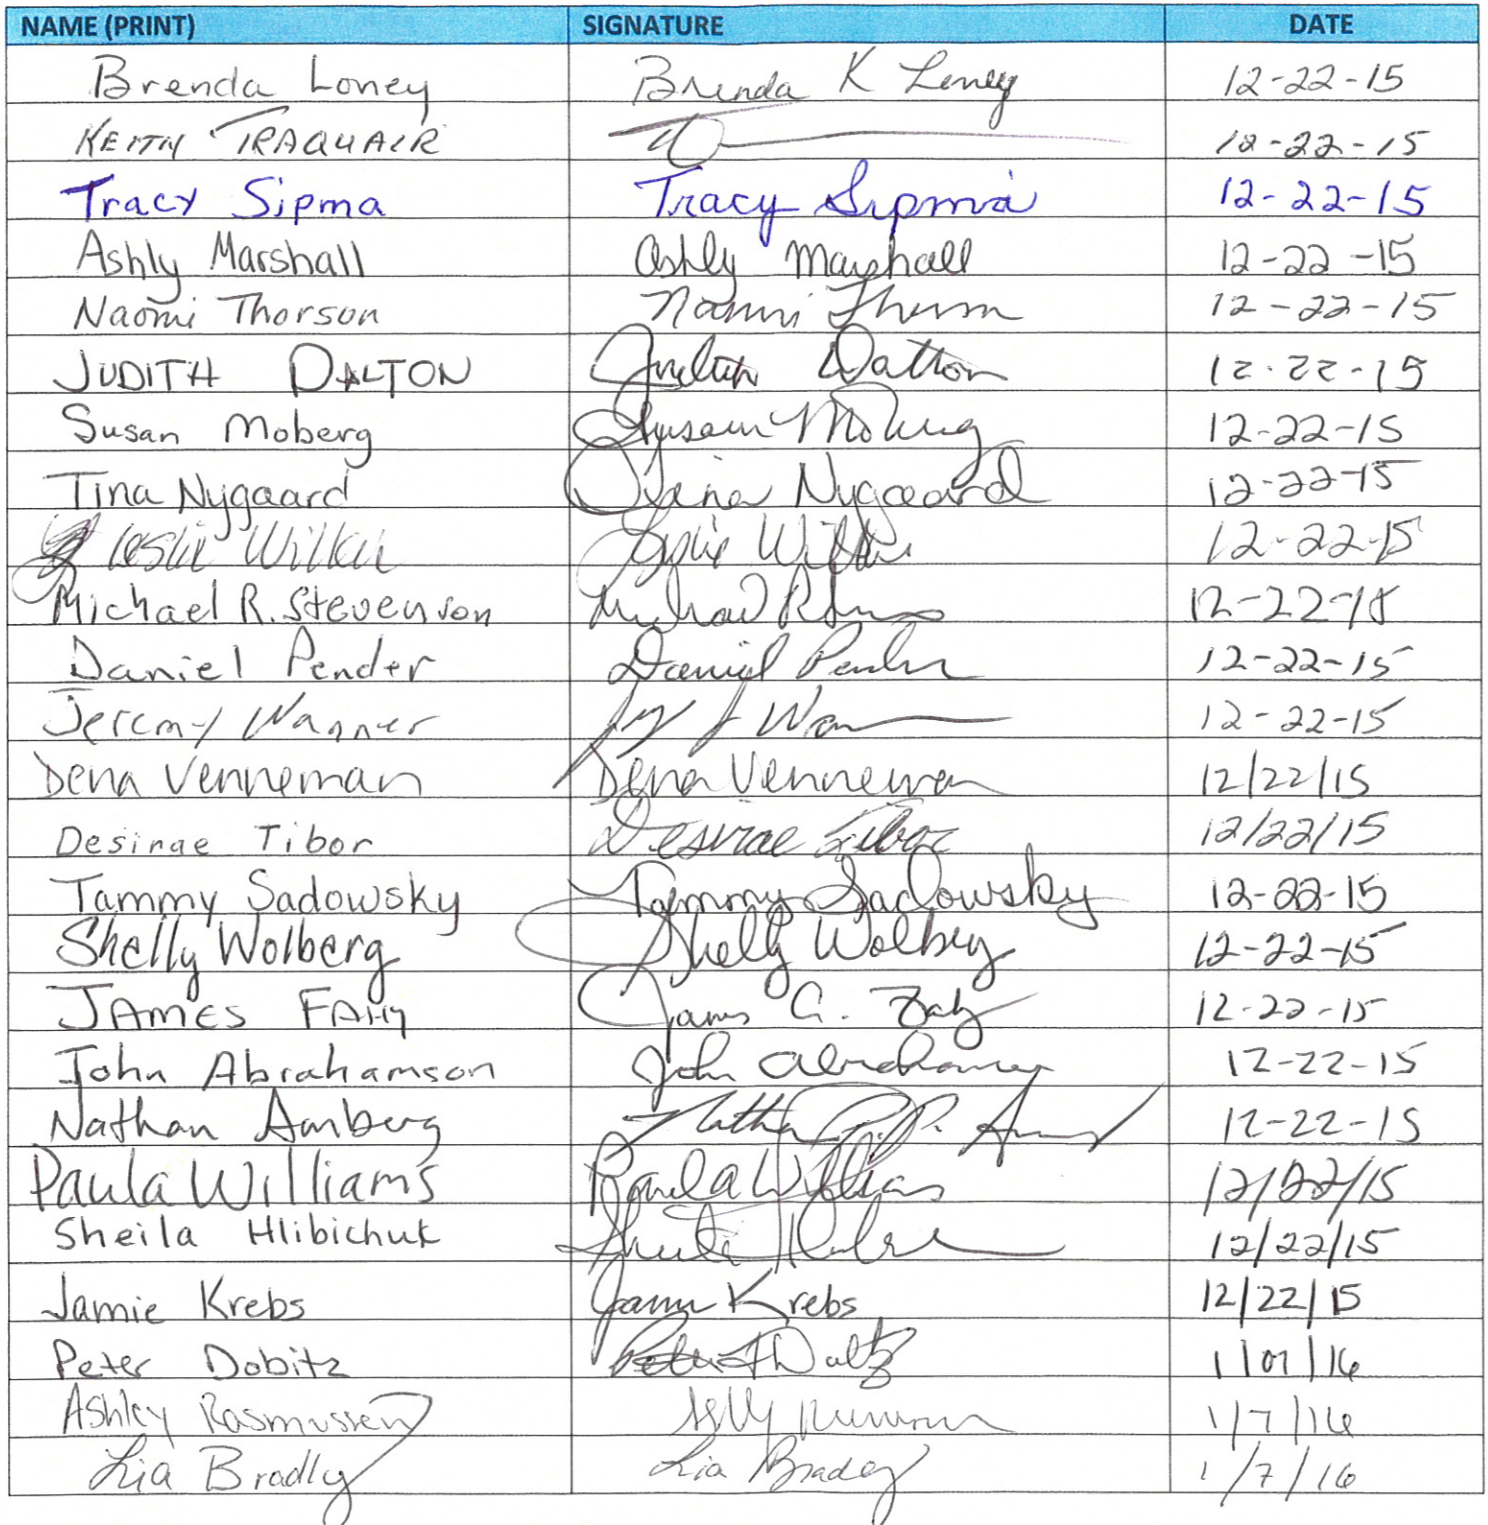 NAME (PRINT) SIGNATURE DATE
Brenda Loney Brenda K Loney 12-22-15
KEITH TRAQUAIR 12-22-15
Tracy Sipma Tracy Sipma 12-22-15
Ashly Marshall Ashly Marshall 12-22-15
Naomi Thorson Naomi Thorson 12-22-15
JUDITH DALTON Judith Dalton 12-22-15
Susan Moberg Susan Moberg 12-22-15
Tina Nygaard Tina Nygaard 12-22-15
Leslie Leslie 12-22-15
Michael R. Stevenson Michael R 12-22-15
Daniel Pender Daniel Pender 12-22-15
Jeremy Wagner 12-22-15
Dena Venneman Dena Venneman 12/22/15
Desirae Tibor Desirae Tibor 12/22/15
Tammy Sadowsky Tammy Sadowsky 12-22-15
Shelly Wolberg Shelly Wolberg 12-22-15
JAMES FAHY James G. Fahy 12-22-15
John Abrahamson John Abrahamson 12-22-15
Nathan Amberg Nathan 12-22-15
Paula Williams Paula Williams 12/22/15
Sheila Hlibichuk Sheila 12/22/15
Jamie Krebs Jamie Krebs 12/22/15
Peter Dobitz 1/07/16
Ashley Rasmussen 1/7/16
Lia Bradly Lia Bradly 1/7/16